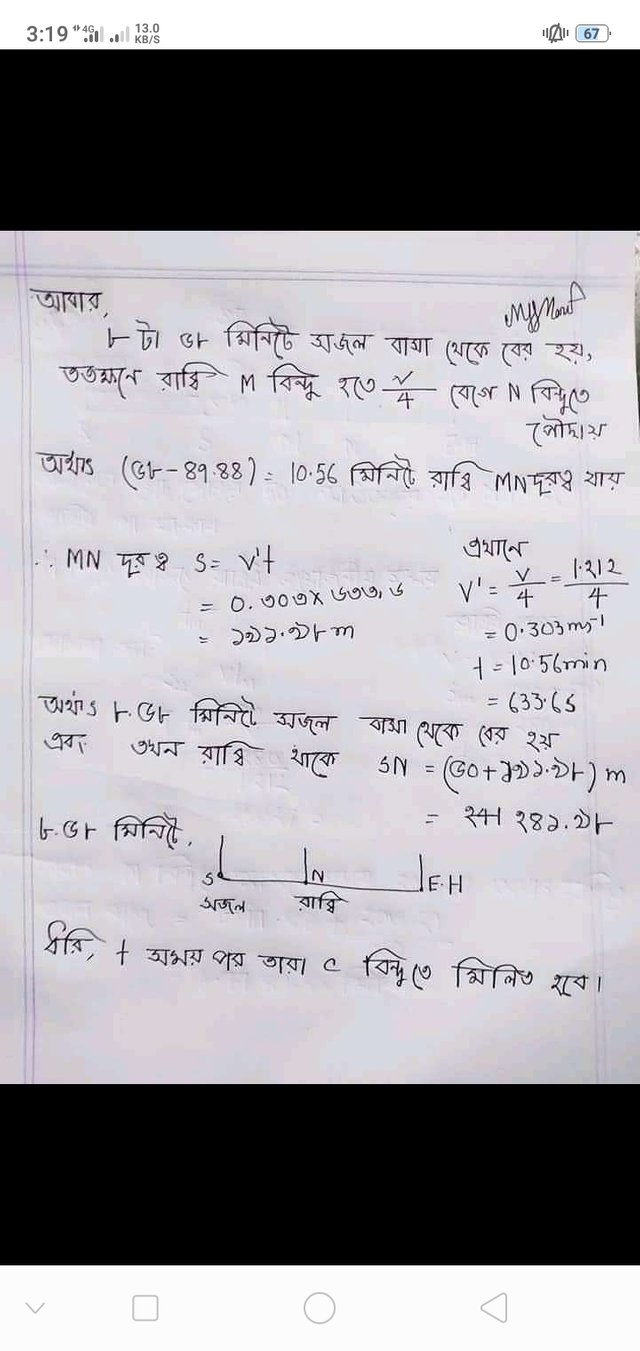 3:19 4G 13.0 KB/S 67
আবার,
৮ টা ৫৮ মিনিটে সজল বাসা থেকে বের হয়,
ততক্ষনে রাব্বি M বিন্দু হতে V/4 বেগে N বিন্দুতে
পৌছায়
অর্থাৎ (৫৮-৪৭.৪৪) = 10.56 মিনিটে রাব্বি MN দূরত্ব যায়
∴ MN দূরত্ব S = V't
= 0.৩০৩×৬৩৩.৬
= ১৯১.৯৮ m
এখানে
V' = V/4 = 1.212/4
= 0.303 ms⁻¹
t = 10.56 min
= 633.6s
অর্থাৎ ৮.৫৮ মিনিটে সজল বাসা থেকে বের হয়
এবং তখন রাব্বি থাকে SN = (৫০+১৯১.৯৮) m
= ২৪১.৯৮
৮.৫৮ মিনিটে,
S N E.H
সজল রাব্বি
ধরি, t সময় পর তারা C বিন্দুতে মিলিত হবে।